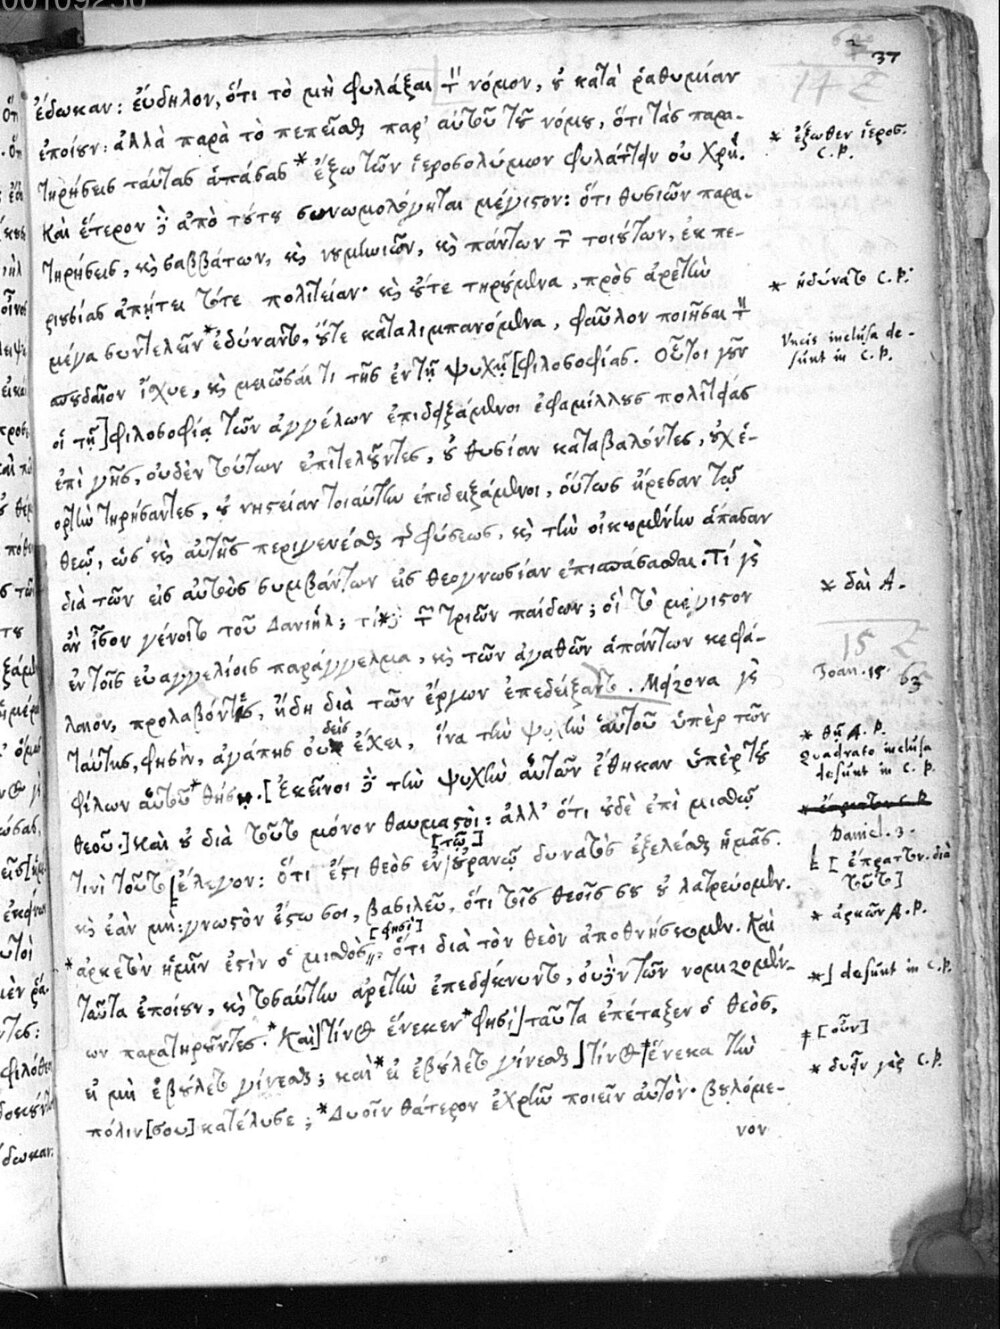 37
ἔδωκαν: εὔδηλον, ὅτι τὸ μὴ φυλάξαι τὸν νόμον, οὐ κατὰ ῥαθυμίαν
ἐποίουν: ἀλλὰ παρὰ τὸ πεπεῖσθαι παρ' αὐτοῦ τοῦ νόμου, ὅτι τὰς παρα-
τηρήσεις ταύτας ἁπάσας * ἔξω τῶν ἱεροσολύμων φυλάττειν οὐ χρή.
* ἔξωθεν ἱεροσ. C.P.
Καὶ ἕτερον δὲ ἀπὸ τούτου συνωμολόγηται μέγιστον: ὅτι θυσιῶν παρα-
τηρήσεις, καὶ σαββάτων, καὶ νουμηνιῶν, καὶ πάντων τῶν τοιούτων, ἐκ πε-
ριουσίας ἀπῄτει τότε πολιτείαν· καὶ οὔτε τηρούμενα, πρὸς ἀρετὴν
μέγα συντελεῖν * ἐδύναντο, οὔτε καταλιμπανόμενα, φαῦλον ποιῆσαι τὸν
* ἠδύνατο C.P.
σπουδαῖον ἴσχυε, καὶ μειῶσαί τι τῆς ἐν τῇ ψυχῇ [φιλοσοφίας. Οὗτοι γοῦν
Uncis inclusa de-
sunt in C.P.
οἱ τῇ] φιλοσοφίᾳ τῶν ἀγγέλων ἐπιδειξάμενοι ἐφαμίλλους πολιτείας
ἐπὶ γῆς, οὐδὲν τούτων ἐπιτελοῦντες, οὐ θυσίαν καταβαλόντες, οὐχ ἑ-
ορτὴν τηρήσαντες, οὐ νηστείαν τοιαύτην ἐπιδειξάμενοι, οὕτως ἤρεσαν τῷ
θεῷ, ὡς καὶ αὐτῆς περιγενέσθαι τῆς φύσεως, καὶ τὴν οἰκουμένην ἅπασαν
διὰ τῶν εἰς αὐτοὺς συμβάντων εἰς θεογνωσίαν ἐπισπάσασθαι. Τί γὰρ
ἂν ἴσον γένοιτο τοῦ Δανιήλ; τί * δὲ τῶν τριῶν παίδων; οἳ τὸ μέγιστον
* δαὶ A.
ἐν τοῖς εὐαγγελίοις παράγγελμα, καὶ τῶν ἀγαθῶν ἁπάντων κεφά-
λαιον, προλαβόντες, ἤδη διὰ τῶν ἔργων ἐπεδείξαντο. Μείζονα γὰρ
Joan. 15.
ταύτης, φησὶν, ἀγάπης οὐδεὶς ἔχει, ἵνα τὴν ψυχὴν αὐτοῦ ὑπὲρ τῶν
φίλων αὐτοῦ * θήσει. [Ἐκεῖνοι δὲ τὴν ψυχὴν αὐτῶν ἔθηκαν ὑπὲρ τοῦ
* θῇ A.P.
Quadrato inclusa
desunt in C.P.
θεοῦ.] Καὶ οὐ διὰ τοῦτο μόνον θαυμαστοί: ἀλλ' ὅτι οὐδὲ ἐπὶ μισθῷ
τινὶ τοῦτο [ἔλεγον: ὅτι ἔστι θεὸς ἐν [τῷ] οὐρανῷ δυνατὸς ἐξελέσθαι ἡμᾶς.
Daniel. 3.
[ἔπραττον. διὰ
τοῦτο]
καὶ ἐὰν μὴ: γνωστὸν ἔστω σοι, βασιλεῦ, ὅτι τοῖς θεοῖς σου οὐ λατρεύομεν.
* ἀρκετὸν ἡμῖν ἐστὶν ὁ μισθὸς [φησὶ], ὅτι διὰ τὸν θεὸν ἀποθνήσκομεν. Καὶ
* ἀρκῶν A.P.
ταῦτα ἐποίουν, καὶ τοσαύτην ἀρετὴν ἐπεδείκνυντο, οὐδὲν τῶν νομιζομέν-
ων παρατηροῦντες. * Καὶ] τίνος ἕνεκεν * φησὶ] ταῦτα ἐπέταξεν ὁ θεὸς,
*] desunt in C.P.
εἰ μὴ ἐβούλετο γίνεσθαι; καὶ * εἰ ἐβούλετο γίνεσθαι] τίνος ‡ ἕνεκα τὴν
‡ [οὖν]
πόλιν [σου] κατέλυσε; * Δυοῖν θάτερον ἐχρῆν ποιεῖν αὐτὸν· βουλόμε-
* δυεῖν γὰρ C.P.
νον